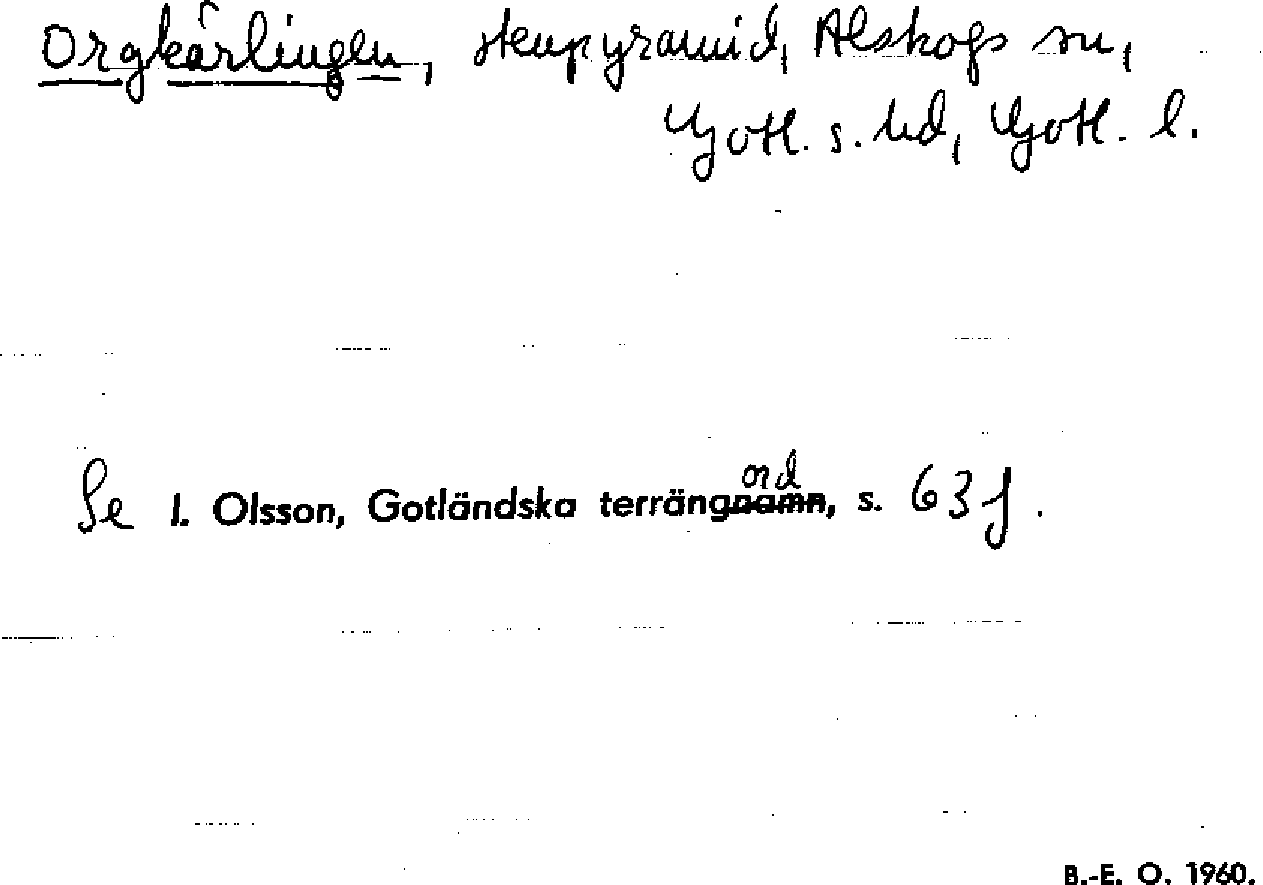 Orgkärlingen, stenpyramid, Alskogs sn,
Gotl. s. hd, Gotl. l.
Se I. Olsson, Gotländska terrängnamn ord, s. 63 f.
B.-E. O. 1960.